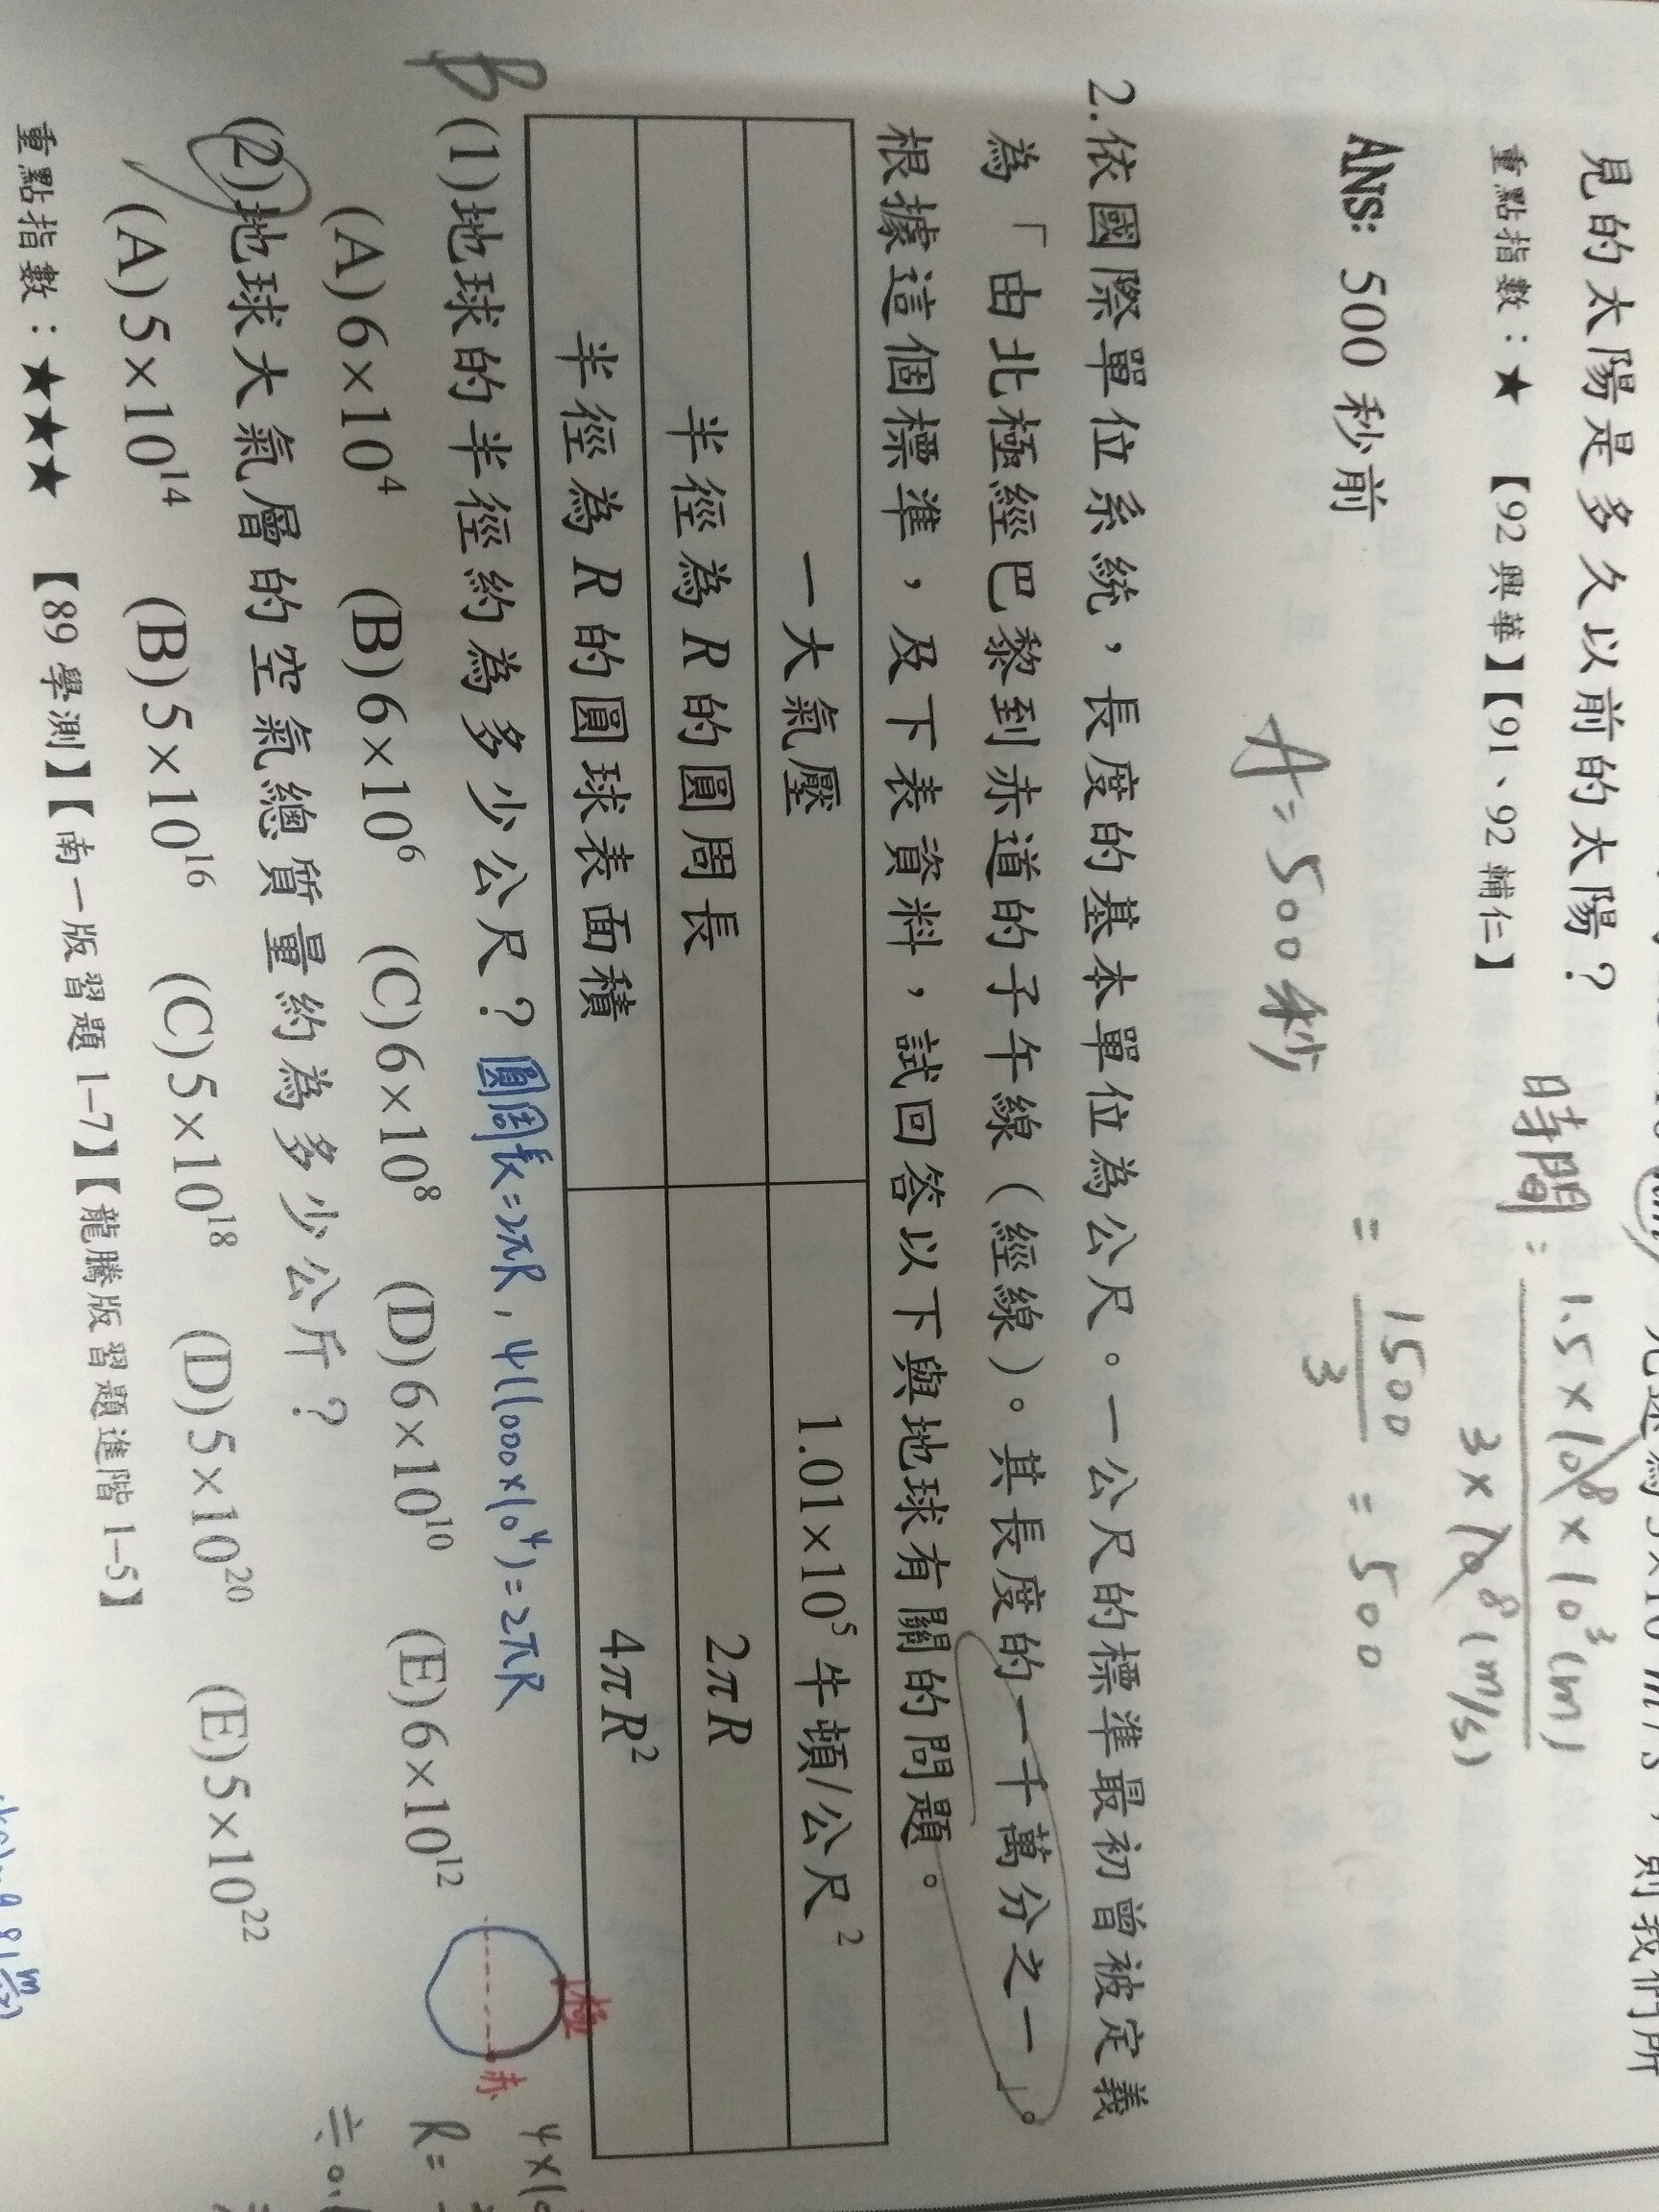 見的太陽是多久以前的太陽？
重點指數：★ 【92 興華】【91、92 輔仁】
時間：1.5×10⁸×10³(m)
3×10⁸(m/s)
= 1500
3
= 500
ANS: 500 秒前
A=500秒
2.依國際單位系統，長度的基本單位為公尺。一公尺的標準最初曾被定義
為「由北極經巴黎到赤道的子午線（經線）。其長度的一千萬分之一」。
根據這個標準，及下表資料，試回答以下與地球有關的問題。
一大氣壓 1.01×10⁵ 牛頓/公尺²
半徑為 R 的圓周長 2πR
半徑為 R 的圓球表面積 4πR²
B
(1)地球的半徑約為多少公尺？圓周長=2πR，4(1000×10⁴)=2πR
(A)6×10⁴ (B)6×10⁶ (C)6×10⁸ (D)6×10¹⁰ (E)6×10¹²
極
赤
R=
(2)地球大氣層的空氣總質量約為多少公斤？
(A)5×10¹⁴ (B)5×10¹⁶ (C)5×10¹⁸ (D)5×10²⁰ (E)5×10²²
重點指數：★★★ 【89 學測】【南一版習題 1-7】【龍騰版習題進階 1-5】